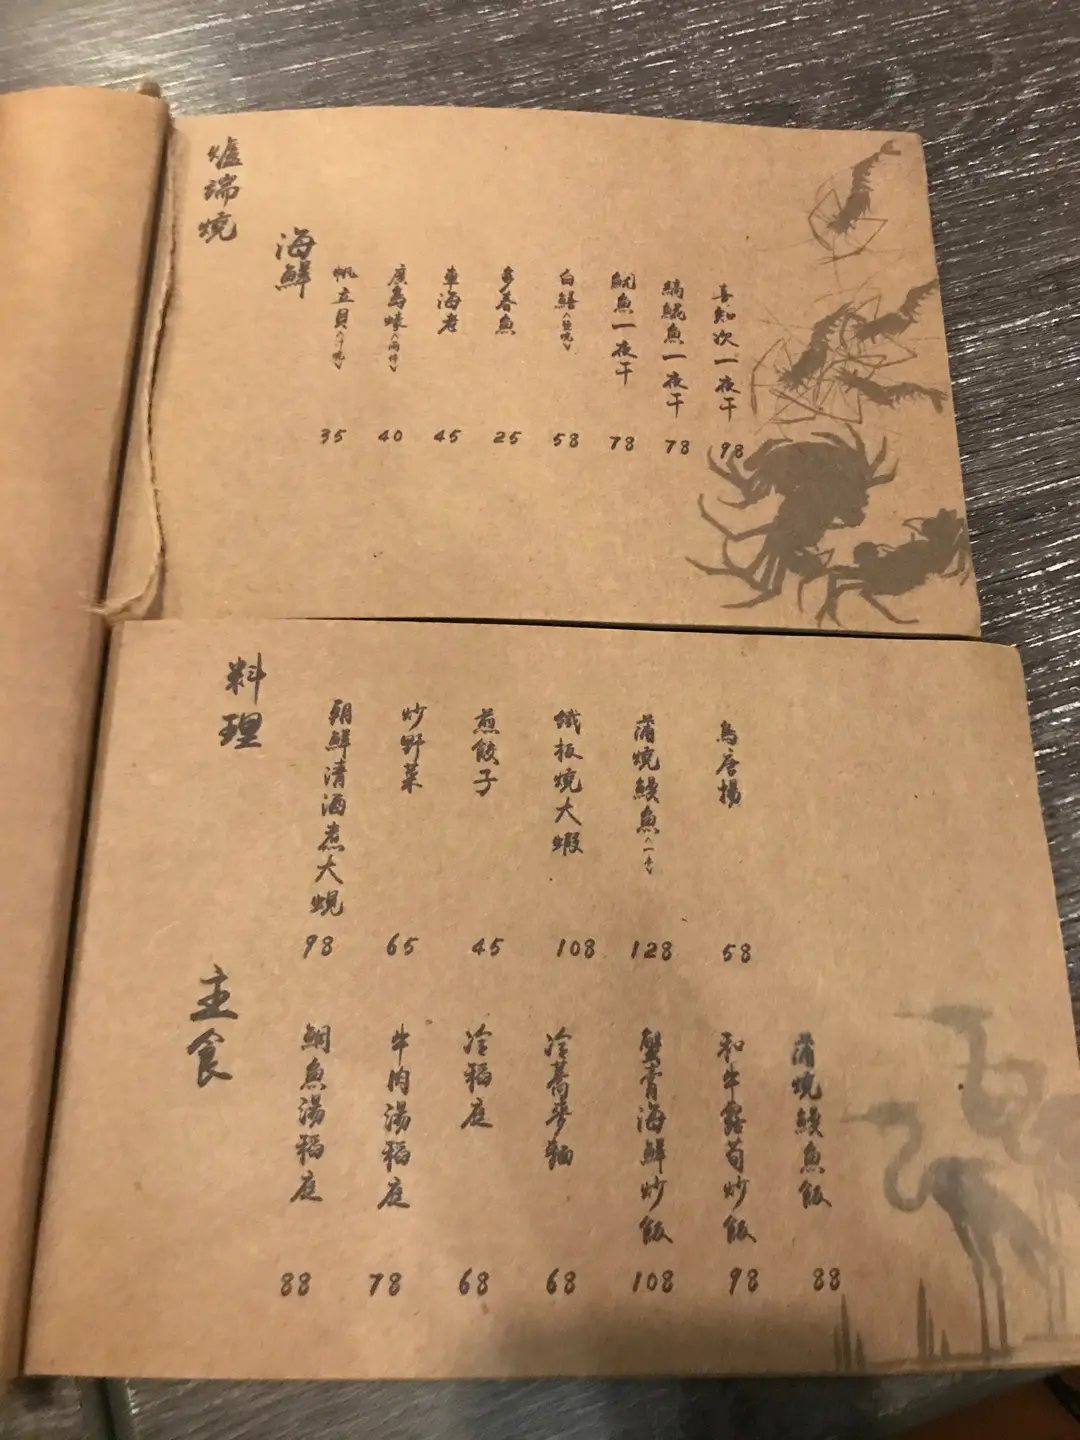 爐端燒
海鮮
帆立貝
35
廣島蠔
40
車海老
45
多春魚
25
白鱔
58
魷魚一夜干
78
縞鯤魚一夜干
78
喜知次一夜干
98
料理
朝鮮清酒煮大蜆
98
炒野菜
65
煎餃子
45
鐵板燒大蝦
108
蒲燒鰻魚
128
烏唐揚
58
主食
鯛魚湯稻庭
88
牛肉湯稻庭
78
冷稻庭
68
冷蕎麥麵
68
蟹膏海鮮炒飯
108
和牛露荀炒飯
98
蒲燒鰻魚飯
88